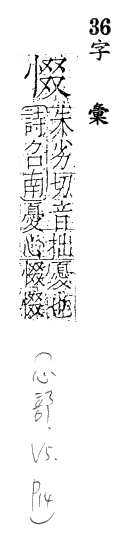 36字彙
惙
朱劣切音拙憂也
詩召南憂心惙惙
（心部. V5. P14）